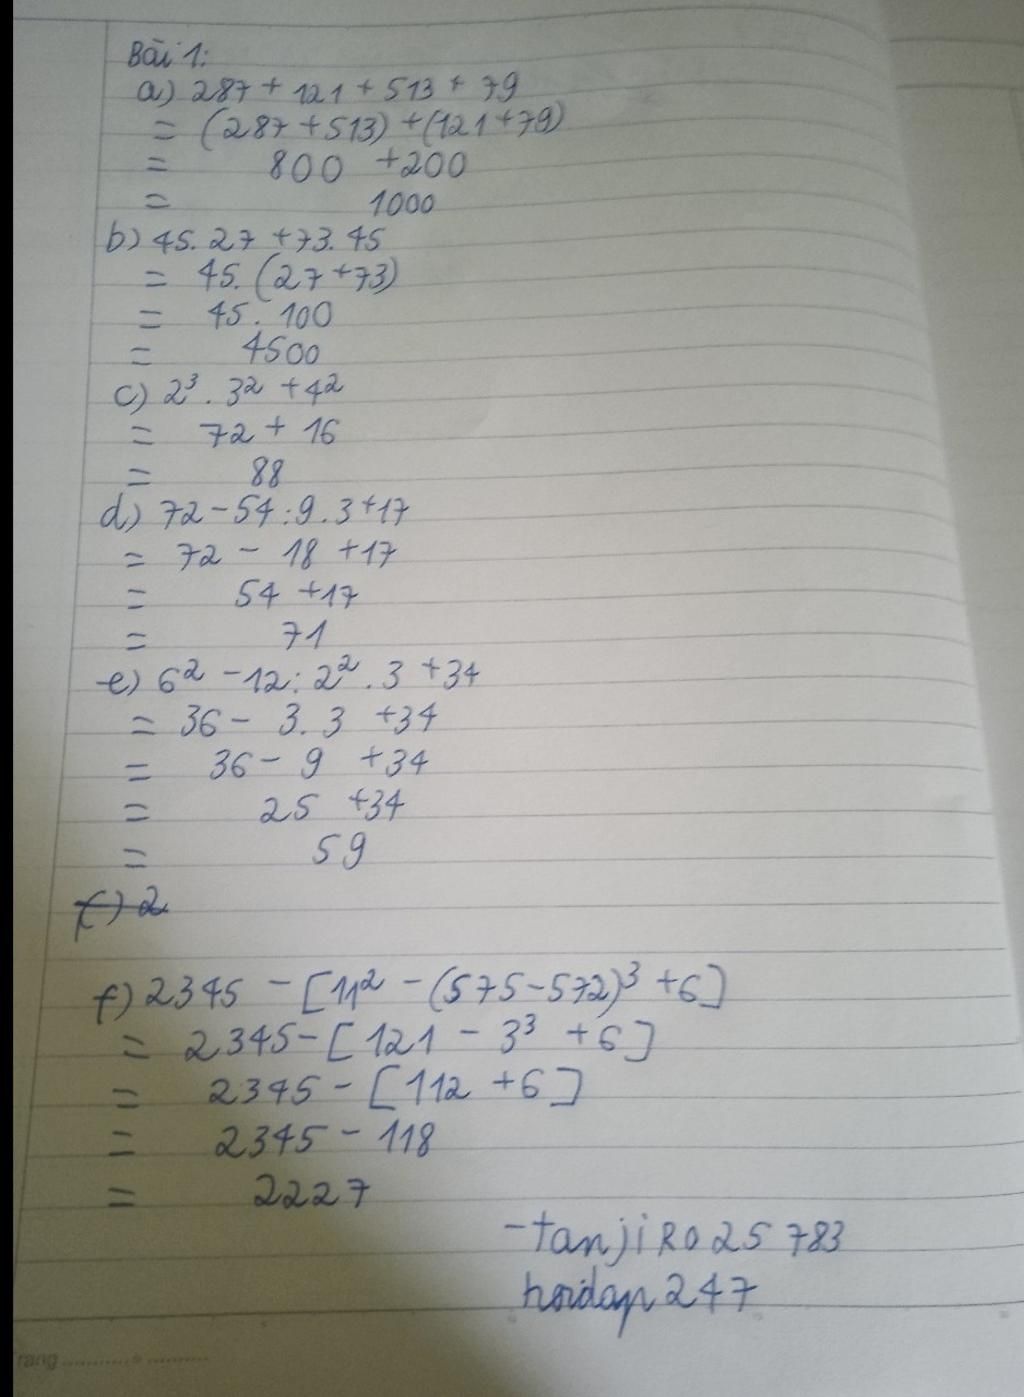 Bài 1:
a) 287 + 121 + 513 + 79
= (287 + 513) + (121 + 79)
= 800 + 200
= 1000
b) 45. 27 + 73. 45
= 45. (27 + 73)
= 45. 100
= 4500
c) 2³ . 3² + 4²
= 72 + 16
= 88
d) 72 - 54 : 9 . 3 + 17
= 72 - 18 + 17
= 54 + 17
= 71
e) 6² - 12 : 2² . 3 + 34
= 36 - 3. 3 + 34
= 36 - 9 + 34
= 25 + 34
= 59
f) 2
f) 2345 - [11² - (575 - 572)³ + 6]
= 2345 - [121 - 3³ + 6]
= 2345 - [112 + 6]
= 2345 - 118
= 2227
- tanjiRO25 783
hoidap247
Trang